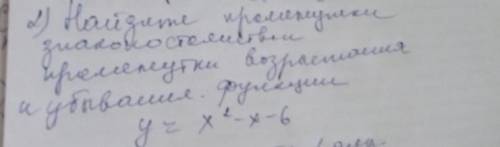 2) Найдите промежутки
знакопостоянства
промежутки возрастания
и убывания. функции
y = x² - x - 6